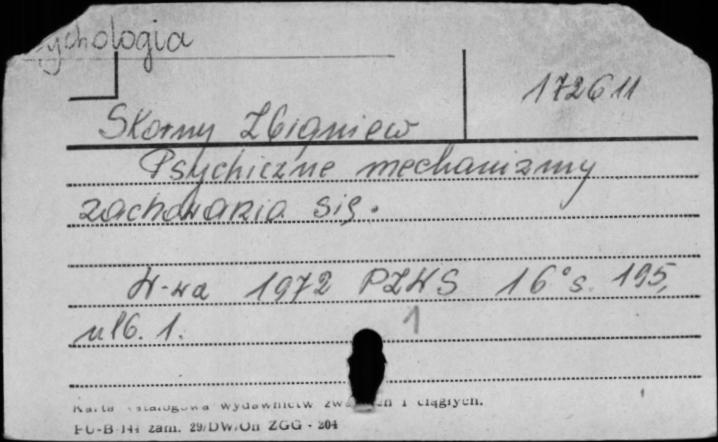 ychologia
172611
Skorny Zbigniew
Psychiczne mechanizmy
zachowania się.
W-wa 1972 PZWS 16° s. 195,
nlb. 1. 1
Karta katalogowa wydawnictw zwartych i ciągłych.
PU-B-141 zam. 29/DW/On ZGG - 204